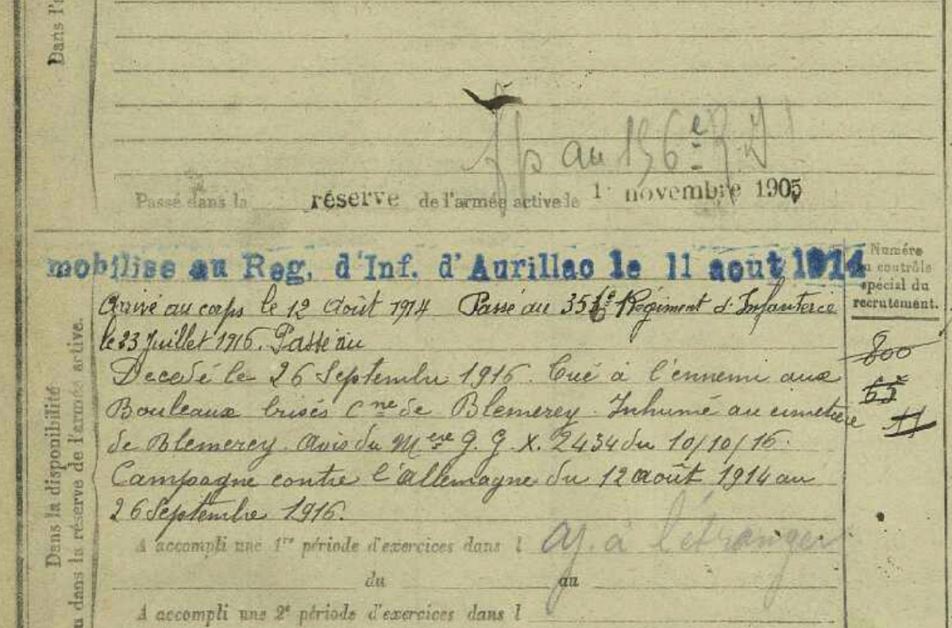 Dans l'a
au 156e R.I
Passé dans la réserve de l'armée active le 1 novembre 1905
mobilise au Reg. d'Inf. d'Aurillac le 11 aout 1914
Numéro
au contrôle
spécial du
recrutement.
Arrivé au corps le 12 Août 1914 Passé au Régiment d'Infanterie
le 23 Juillet 1916. Passé au
Decedé le 26 Septembre 1916. Tué à l'ennemi aux
Bouleaux brisés Cne de Blemerey. Inhumé au cimetière
de Blemerey. Avis du Mère G. G. X. 2434 du 10/10/16.
Campagne contre l'Allemagne du 12 août 1914 au
26 Septembre 1916.
800
11
Dans la disponibilité
ou dans la réserve de l'armée active.
A accompli une 1re période d'exercices dans l aj. à l'étranger
du au
A accompli une 2e période d'exercices dans l